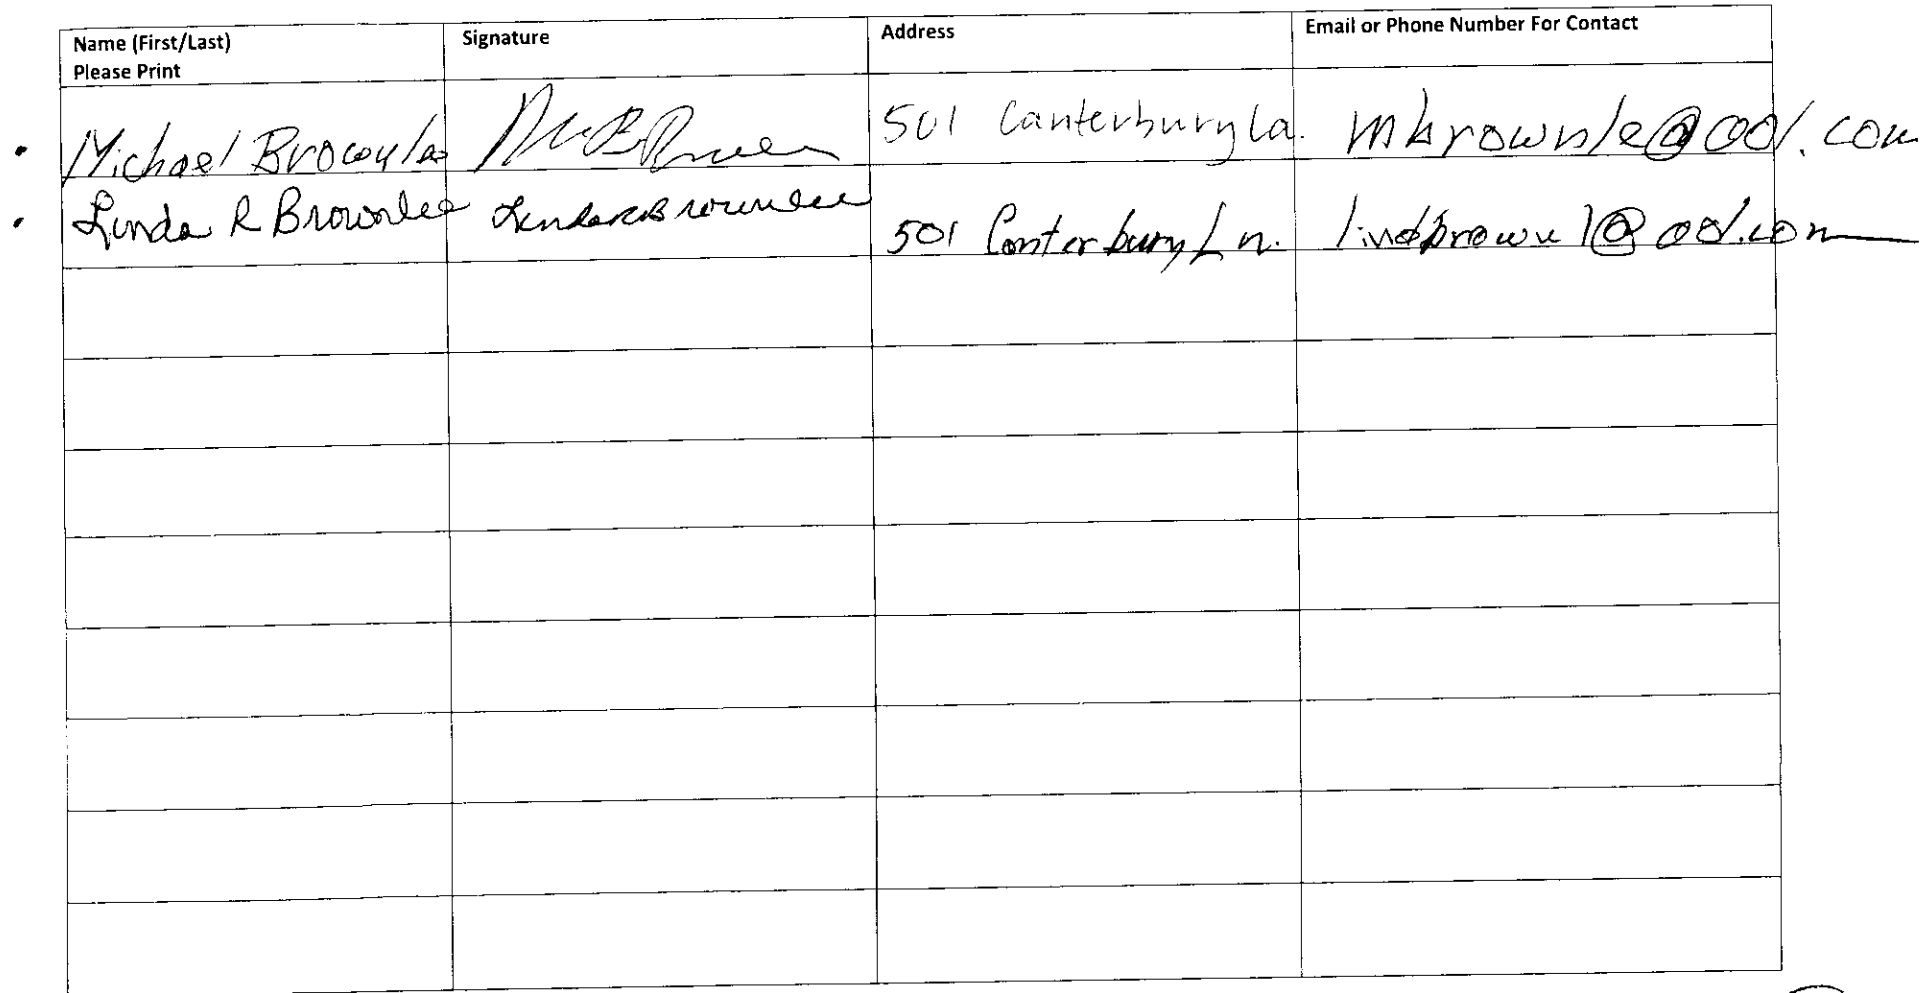 Name (First/Last) Signature Address Email or Phone Number For Contact
Please Print
Michael Brownlee 501 Canterbury La. mbrownle@aol.com
Linda R Brownlee Linda R Brownlee 501 Canterbury Ln. lindbrown1@aol.com